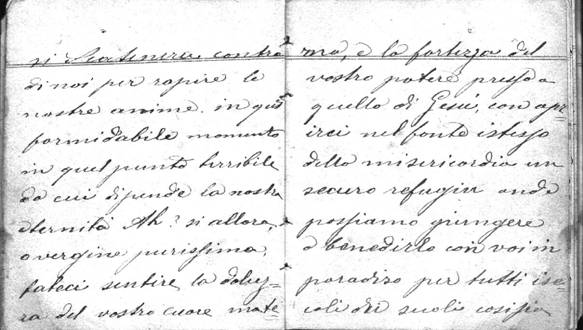 si scatenera contro
di noi per rapire le
nostre anime. in quel
formidabile momento
in quel punto terribile
da cui dipende la nostra
eternità Ah? si allora,
o vergine purissima,
fateci sentire la dolcez-
za del vostro cuore mate-
rno, e la fortezza del
vostro potere presso a
quello di Gesù, con apr-
irci nel fonte istesso
della misericordia un
securo refugiu onde
possiamo giungere
a benedirlo con voi in
paradizo per tutti i se-
coli dei secoli cosi sia